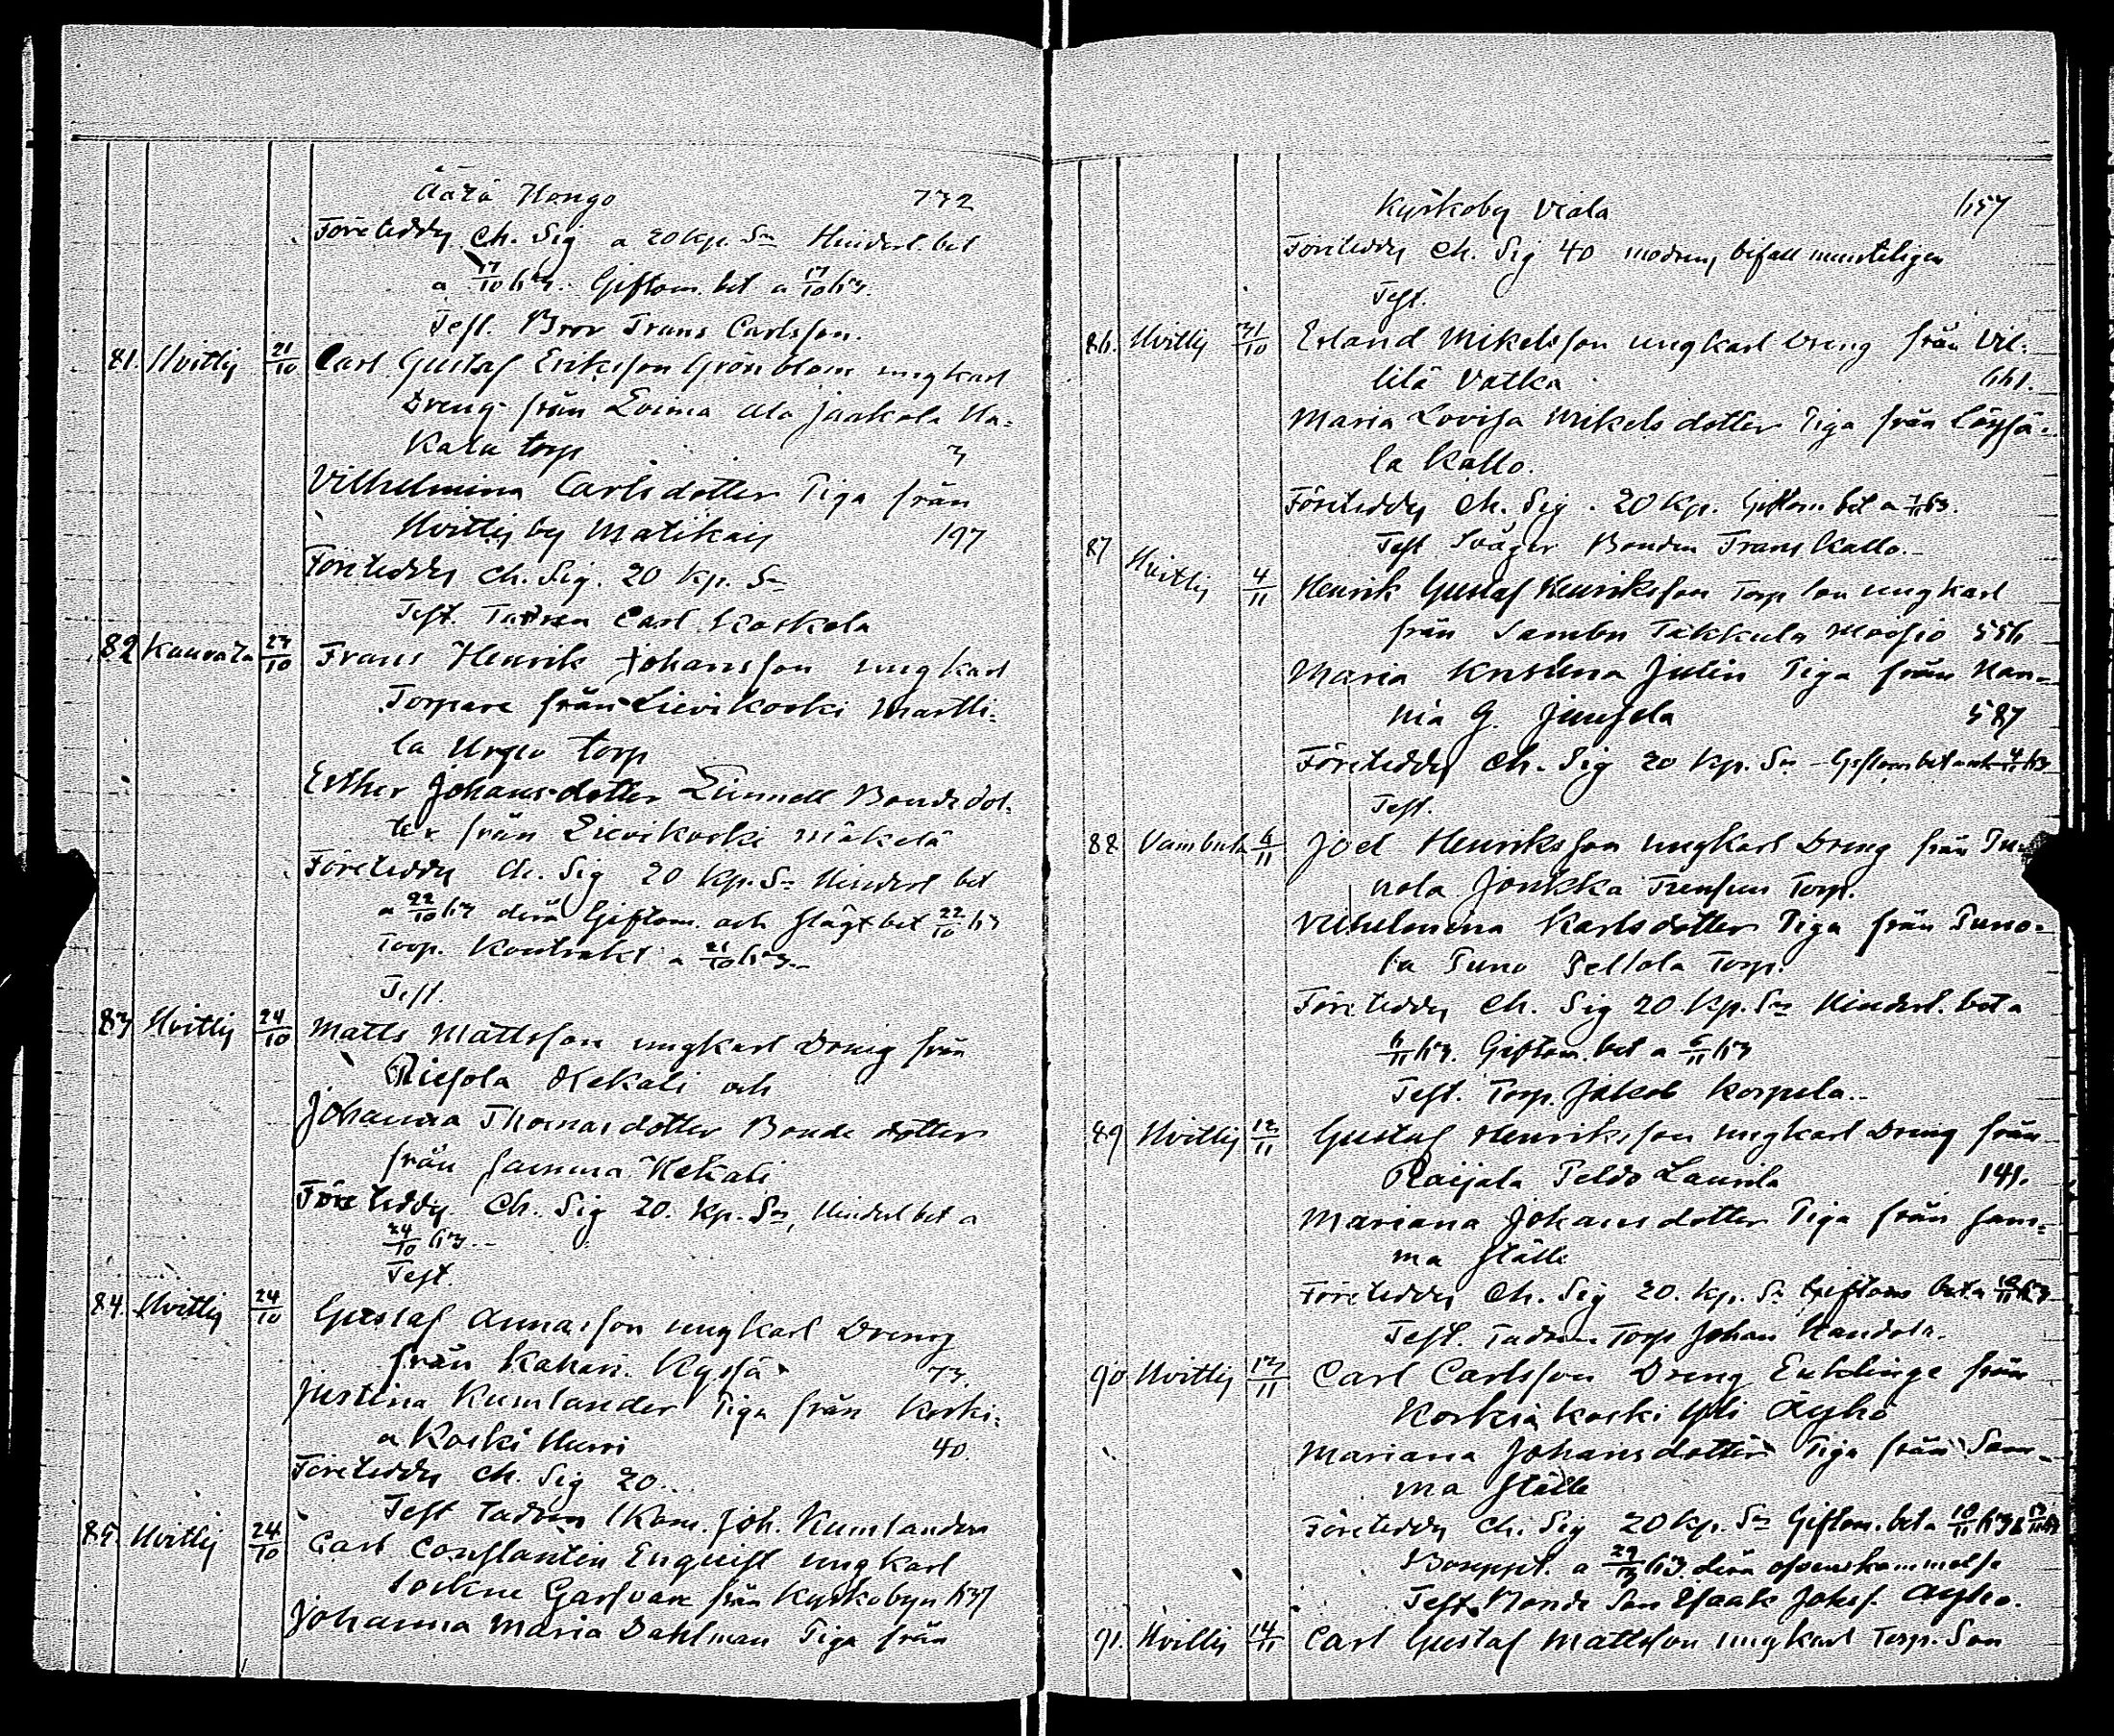 Äärä Hongo 732
Företeddes Ch. Sig a 20 kp. Sr Hinderl. bet
a 17/10 63. Giftom. bet a 17/10 63.
Test. Bror Frans Carlsson.
81. Hvittis 21/10 Carl Gustaf Eriksson Grönblom ungkarl
Dreng från Loima Ala Jaakola Ha=
Kala torp 3
Vilhelmina Carlsdotter Piga från
Hvittis by Matikais 197
Företeddes Ch. Sig. 20 kp. Sr
Test. Fadren Carl Koskela
82 Kauvatsa 23/10 Frans Henrik Johansson ungkarl
Torpare från Lievikoski Martti=
la torp
Esther Johansdotter Linnell Bondedot=
ter från Lievikoski Mäkelä
Företeddes Ch. Sig 20 Kp. Sr Hinderl bet
a 22/10 63 derå Giftom. och slägt bet 22/10 63
Torp. Kontrakt a 21/10 63.
Test.
83 Hvittis 24/10 Matts Mattsson ungkarl Dreng från
Riesola Kekali och
Johanna Thomasdotter Bonde dotter
från samma Kekali
Företeddes Ch. Sig 20. Kp. Sr, Hinderl bet a
24/10 63.
Test.
84. Hvittis 24/10 Gustaf Annasson ungkarl Dreng
från Kahari Kyssä 73.
Justina Kumlander Piga från Korki=
a Koski Hurri 40.
Företeddes Ch. Sig 20.
Test Fadren Joh. Kumlander
85. Hvittis 24/10 Carl Constantin Enqvist ungkarl
Sockne Garfvare från Kyrkobyn 637
Johanna Maria Dahlman Piga från
Kyrkoby Viala 657
Företeddes Ch. Sig 40 modrens bifall munteligen
Test.
86. Hvittis 31/10 Erland Mikelsson ungkarl Dreng från Vil=
lilä Vatka 661.
Maria Lovisa Mikelsdotter Piga från Löysä=
la Kallo.
Företeddes Ch. Sig. 20 Kp. Giftom bet a 1/11 63.
Test Svåger Bonden Frans Kallo.
87 Hvittis 4/11 Henrik Gustaf Henriksson Torp son ungkarl
från Sambu Takkula Moisio 556
Maria Kristina Julin Piga från Han=
nia G. Junsela 587
Företeddes Ch. Sig 20 Kp. Sr Giftom bet 4/11 63
Test.
88 Vambula 6/11 Joel Henriksson ungkarl Dreng från Pu=
nola Jonkka Torp.
Vilhelmina Karlsdotter Piga från Puno=
la Puno Peltola Torp.
Företeddes Ch. Sig 20 Kp. Sr Hinderl. bet a
6/11 63. Giftom. bet a 5/11 63
Test. Torp. Jakob Korpela.
89 Hvittis 12/11 Gustaf Henriksson ungkarl Dreng från
Raijala Peldo Laurila 141.
Mariana Johansdotter Piga från sam=
ma ställe
Företeddes Ch. Sig 20. Kp. Sr Giftom bet a 10/11 63
Test. Fadren Torp Johan Handola.
90 Hvittis 13/11 Carl Carlsson Dreng Enklinge från
Korkiakoski Yli Äyhö
Mariana Johansdotter Piga från Sam=
ma ställe
Företeddes Ch. Sig 20 Kp. Sr Giftom. bet a 10/11 63
a 29/10 63. derå
Test. Bonde Son Isaak Johs. Äyhö.
91. Hvittis 14/11 Carl Gustaf Mattsson ungkarl Torp. Son